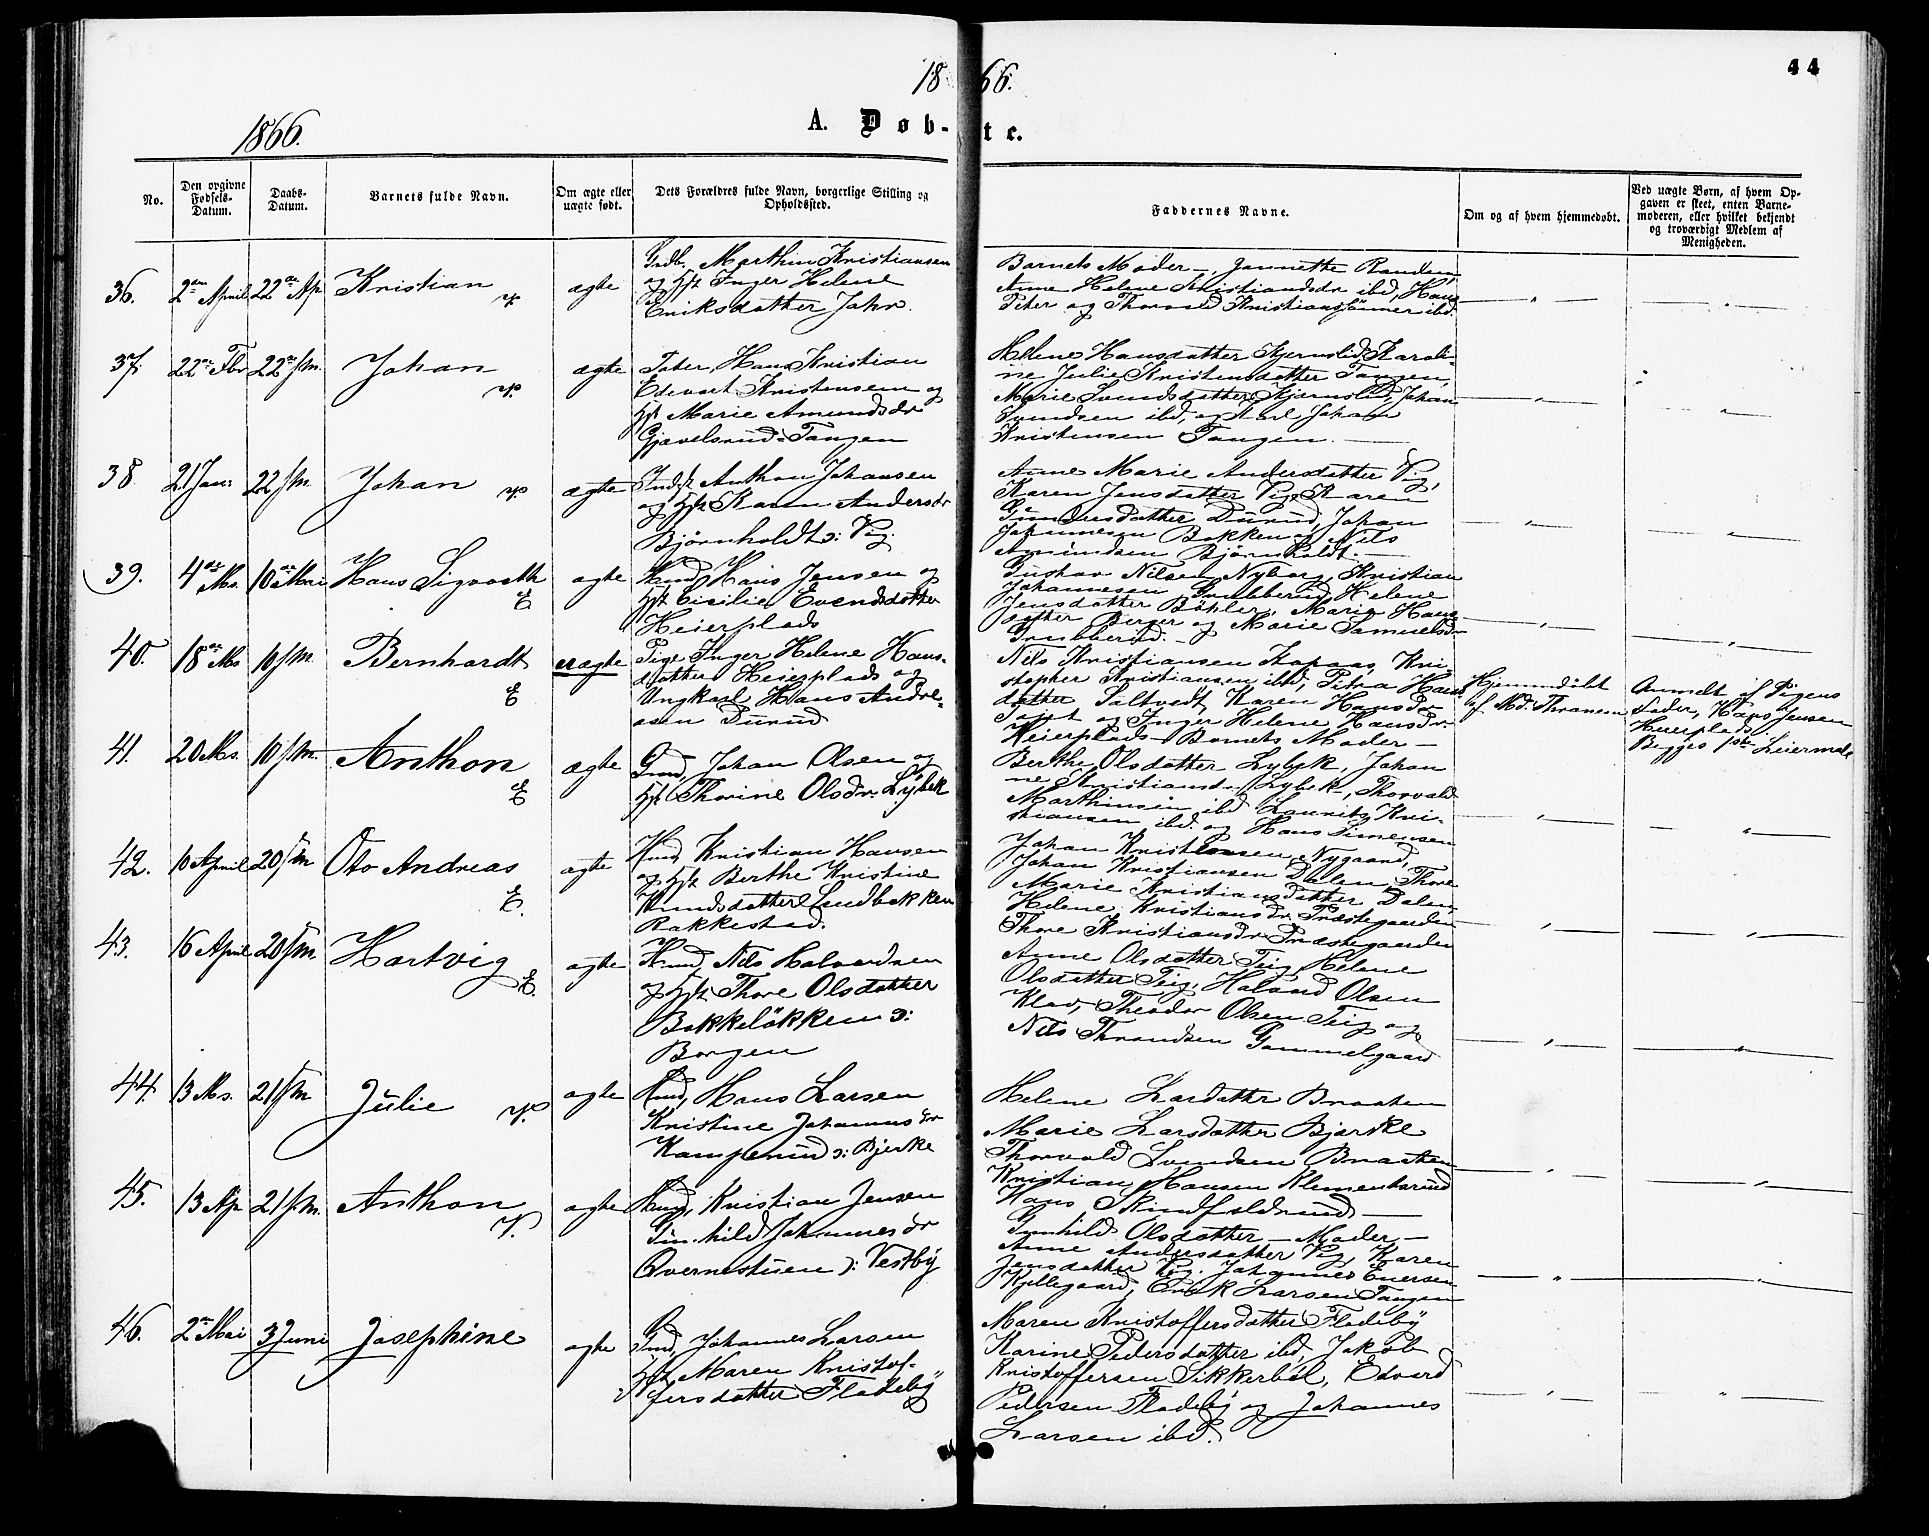 1866.
44
1866.
A. Døbte.
No.
Den opgivne Fødsels-Datum.
Daabs-Datum.
Barnets fulde Navn.
Om ægte eller uægte født.
Dets Forældres fulde Navn, borgerlige Stilling og Opholdssted.
Faddernes Navne.
Om og af hvem hjemmedøbt.
Ved uægte Børn, af hvem Opgaven er skeet, enten Barnemoderen, eller hvilket bekjendt og troværdigt Medlem af Menigheden.
36. 2den April 22de Ap Kristian v. ægte
Grdb. Marthin Kristiansen
og Hst Inger Helene
Eriksdatter Jahr.
Barnets Moder, Jannette Randem,
Anne Helene Kristiansdr ibd, Hans
Peter og Thorvald Kristianssönner ibd.
37. 22de Fbr 22de s/m. Johan v. ægte
Tater, Hans Kristian
Edevart Kristensen og
Hst Marie Amundsdr
Gjævelsrud Tangen
Helene Hansdatter Kjernslid, Karoli-
ne Julie Kristensdatter Tangen,
Marie Svendsdatter Kjernslid, Johan
Svendsen ibd, og Karl Johan
Kristensen Tangen.
38 21 Jan: 22 s/m Johan v. ægte
Indst Anthon Johansen
og Hst Karen Andersdr
Bjørnholdt ɔ: Vig.
Anne Marie Andersdatter Vig,
Karen Jensdatter Vig, Karen
Gundersdatter Durud, Johan
Johannesen Bakken og Nils
Amundsen Bjørnholdt.
39. 4de Ms. 10de Mai Hans Sigvarth E ægte
Hmd, Hans Jensen og
Hst Cicilie Evensdatter
Heierplads
Gustav Nilsen Nyborg, Kristian
Johannesen Grubberud, Helene
Jensdatter Böhler, Marie Hans
datter Berger og Marie Samuelsdr
Grubberud.
40. 18de Ms 10 s/m. Bernhardt E uægte
Pige Inger Helene Hans-
datter Heierplads og
Ungkarl Hans Andre-
asen Durud
Nils Kristiansen Kapaas, Kri-
stopher Kristiansen ibd, Petra Hans
datter Saltvedt, Karen Hansdr
og Inger Helene Hansdr.
Heierplads - Barnets Moder -
Hjemmedöbt
af Md. Thranem
Anmeldt af Pigens
Fader, Hans Jensen
Heierplads.
Begges 1ste Leiermaal
41. 20 Ms. 10 s/m. Anthon E ægte
Grmd, Johan Olsen og
Hst Thorine Olsdr. Lybek
Berthe Olsdatter Lybek, Johan
ne Kristiansdr Lybek, Thorvald
Marthinsen ibd Lauritz Kri-
stiansen ibd. og Hans Simensen
42. 10 April 20 s/m Oto Andreas E. ægte
Hmd Kristian Hansen
og Hst Berthe Kristine
Knudsdatter Lundbakken
Rakkestad.
Johan Kristensen Nygaard,
Johan Kristiansen Dalen, Thore
Marie Kristiansdatter Dalen,
Helene Kristiansdr. Præstegaarden
Thore Kristiansdr. Præstegaarden
43. 16 April 20 s/m Hartvig E. ægte
Hmd Nils Halvordsen
og Hst Thore Olsdatter
Bakkelökken ɔ:
Borgen
Anne Olsdatter Teig, Helene
Olsdatter Teig, Halvard Olsen
Klav, Theodor Olsen Teig og
Nils Throndsen Gammelgaard
44. 13 Ms. 21 s/m Julie v. ægte
Hmd, Hans Larsen
Kristine Johannesdr
Kamperud ɔ: Bjerke
Helene Larsdatter Braaten
Marie Larsdatter Bjerke
Thorvald Svendsen Braaten
Kristian Hansen Klementsrud
Hans Skindfeldrud
45. 13 Ap 21 s/m. Anthon v. ægte
Hmd, Kristian Jensen
Gunhild Johannesdr
Qvernstuen ɔ: Vestby
Gunhild Olsdatter - Moder -
Anne Andersdatter Vig, Karen
Jensdatter Vig. Johannes Enersen
Kjellegaard, Erik Larsen Tangen
46. 2den Mai 3 Juni Josephine ægte
Grmd, Johannes Larsen
Hst Maren Kristof-
fersdatter Fladeby
Maren Kristoffersdatter Fladeby
Karine Pedersdatter ibd, Jakob
Kristoffersen Sikkerböl, Edvard
Pedersen Fladeby og Johannes
Larsen ibd.